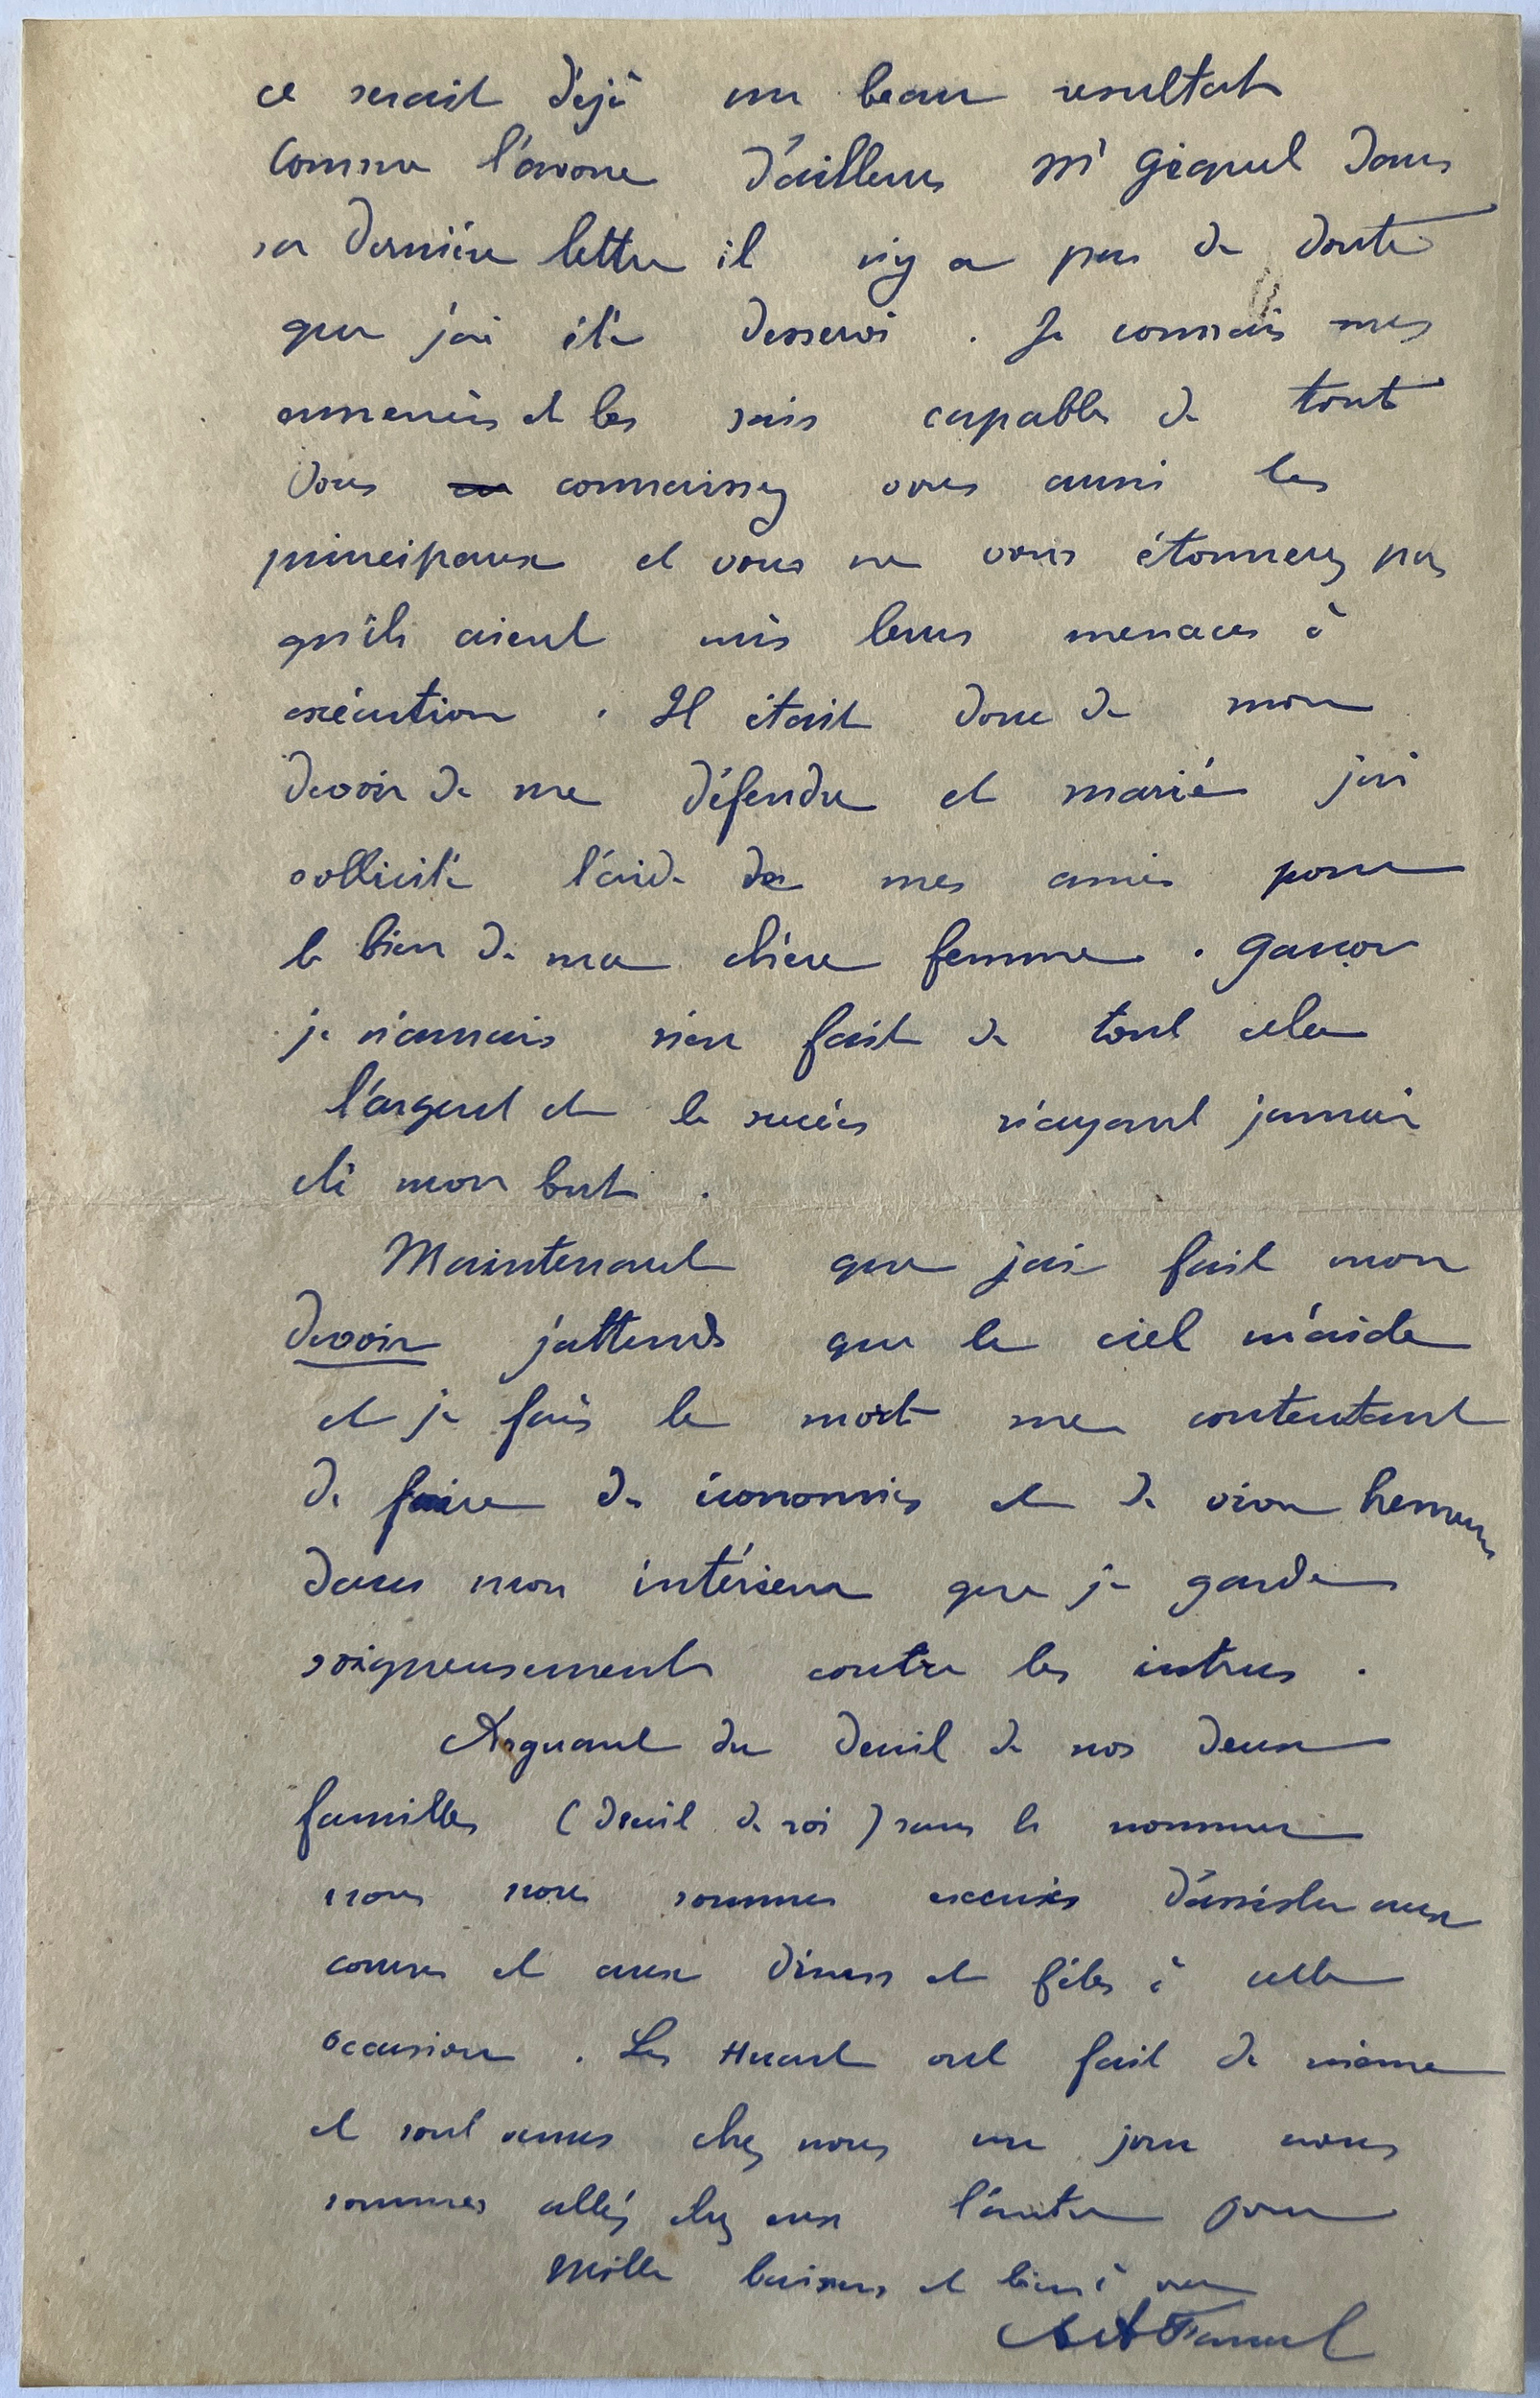 ce serait déjà un beau resultat
comme l'avoue d'ailleurs Mr Giquel dans
sa dernière lettre il n'y a pas de doute
que j'ai été desservi. Je connais mes
ennemis et les sais capables de tout
Vous connaissez vous aussi les
principaux et vous ne vous étonnerez pas
qu'ils aient mis leurs menaces à
exécution. Il était donc de mon
devoir de me défendre et marié j'ai
sollicité l'aide de mes amis pour
le bien de ma chère femme. Garçon
je n'aurais rien fait de tout cela
l'argent et le succès n'ayant jamais
été mon but.
Maintenant que j'ai fait mon
devoir j'attends que le ciel m'aide
et je fais le mort me contentant
de faire des économies et de vivre heureux
dans mon intérieur que je garde
soigneusement contre les intrus.
Arguant du deuil de nos deux
familles (deuil de roi) sans le nommer
nous nous sommes excusés d'assister aux
courses et aux diners et fêtes à cette
occasion. Les Huart ont fait de même
et sont venus chez nous un jour nous
sommes allés chez eux l'autre jour
Mille baisers et bien à vous